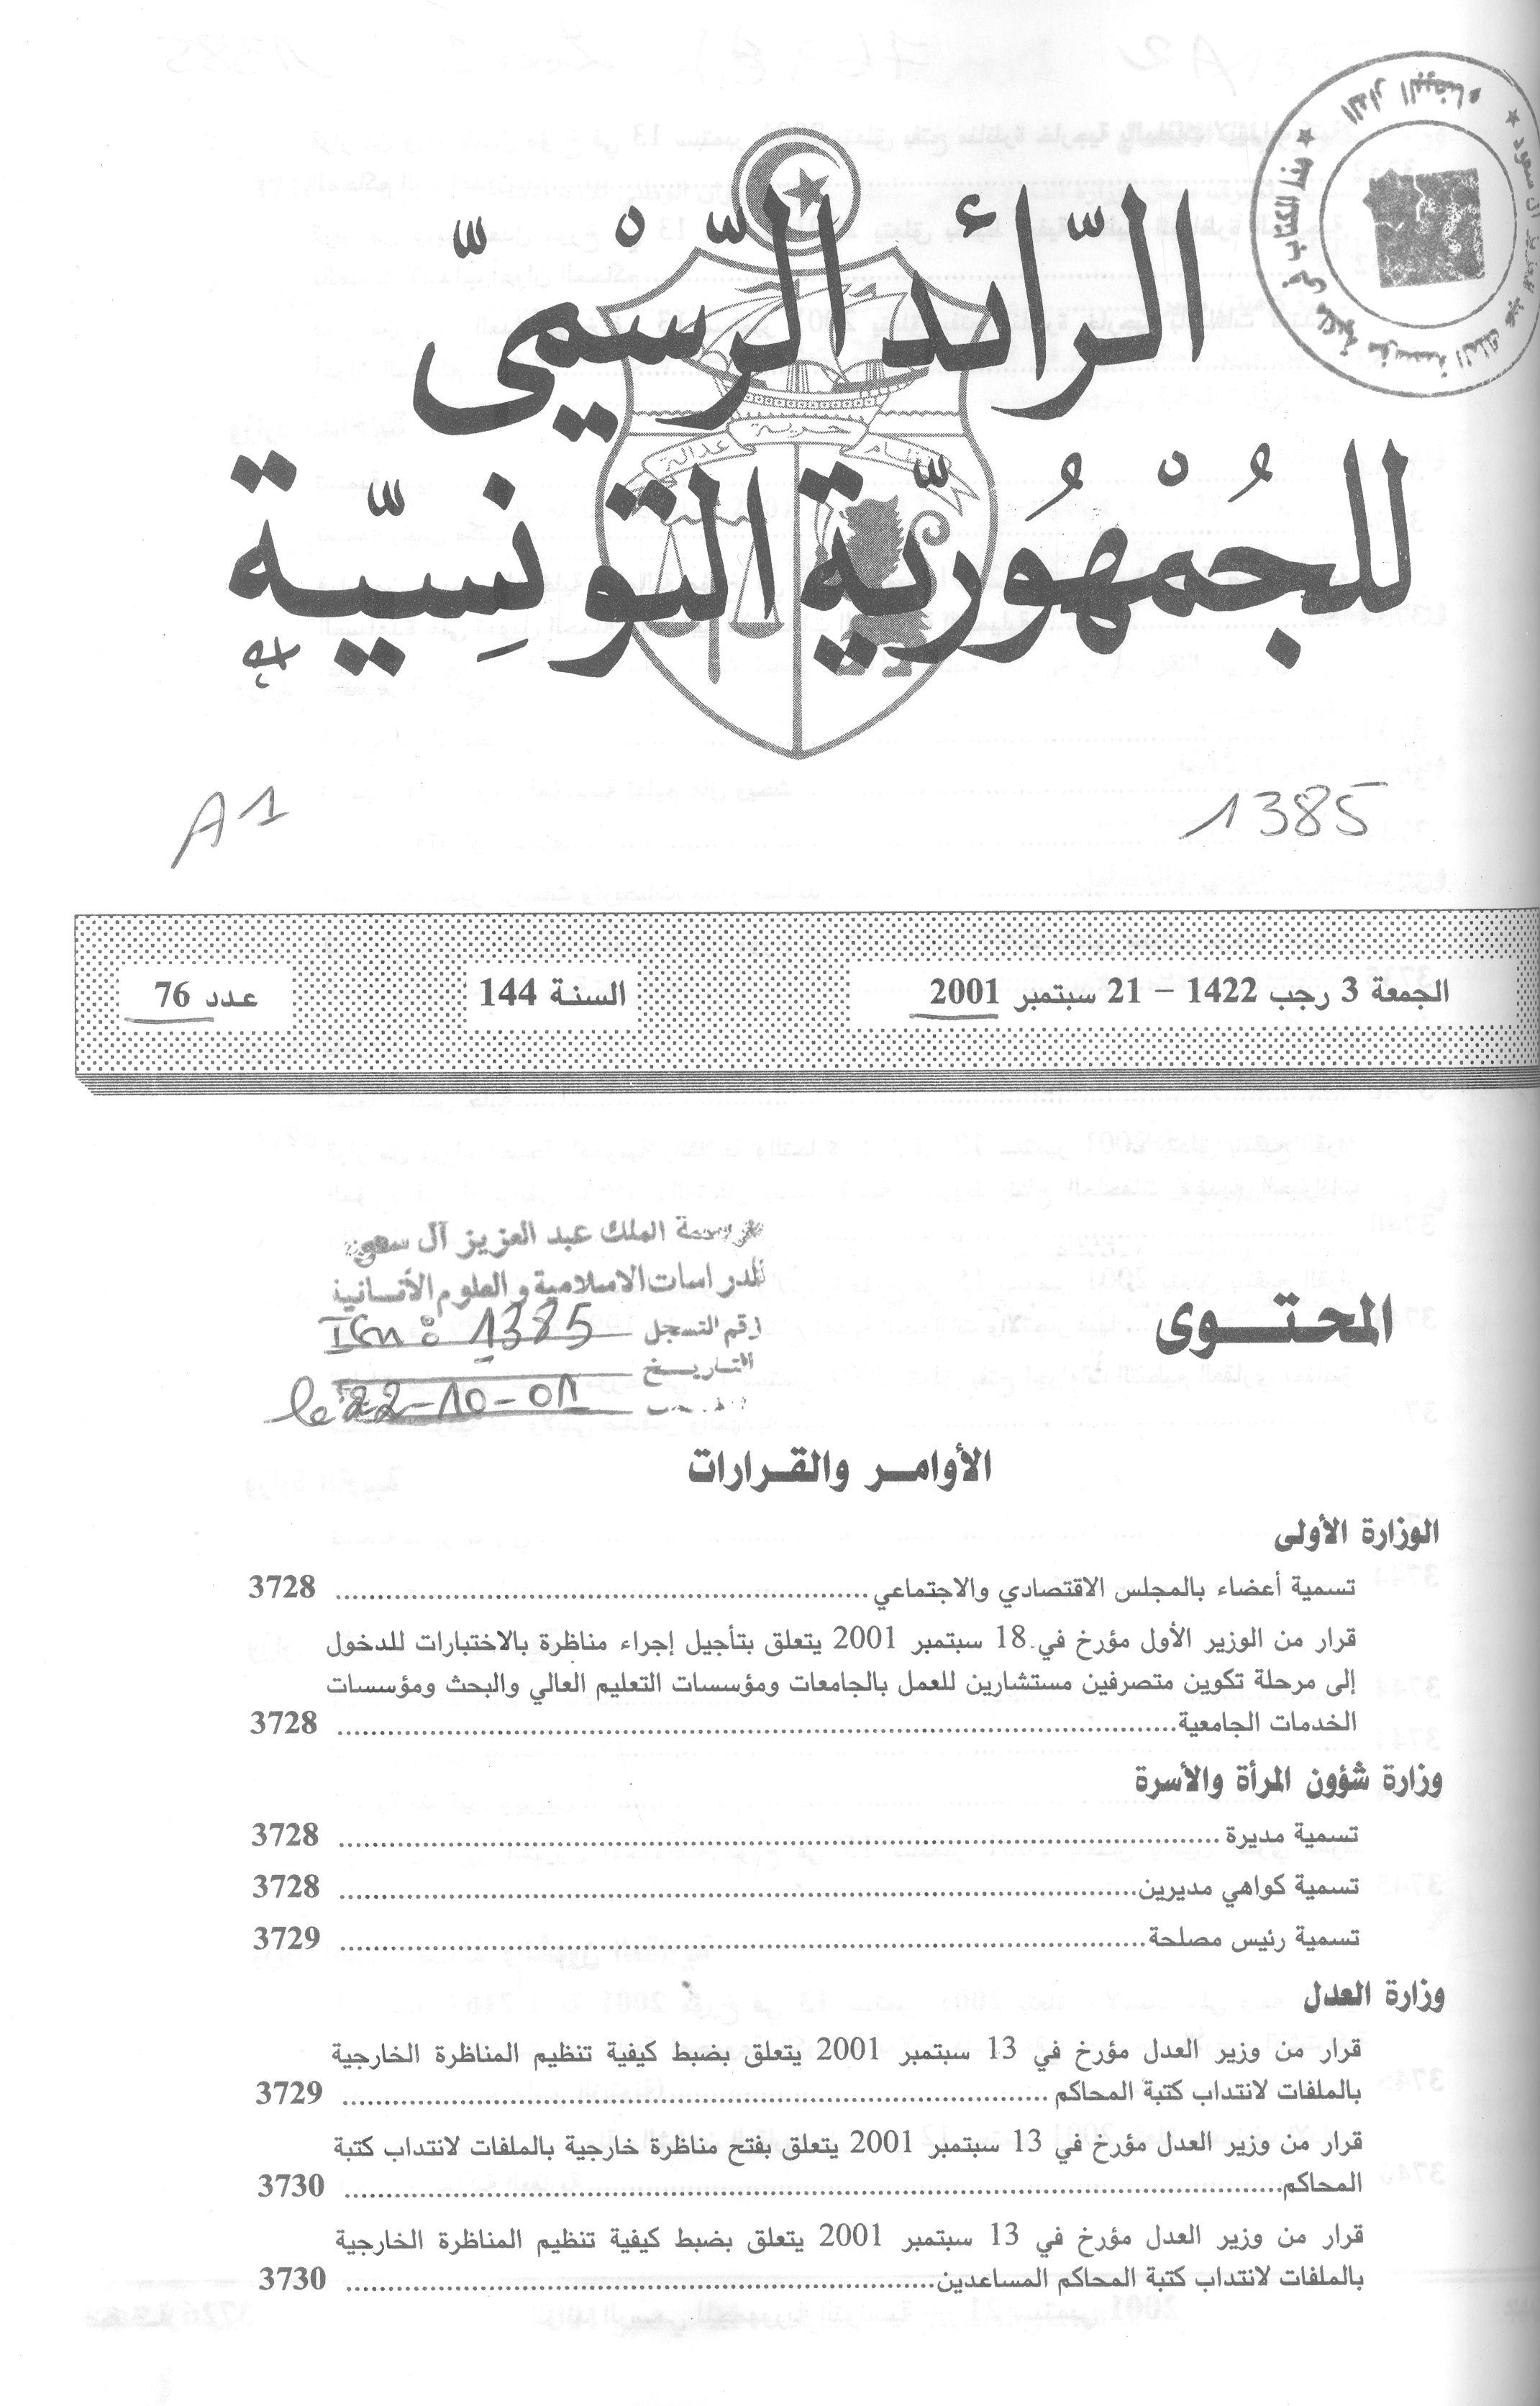 الرّائد الرّسْميّ
للجُمْهُوريّة التّونِسيّة
نظام حرية عدالة
A1
1385
الجمعة 3 رجب 1422 – 21 سبتمبر 2001
السنة 144
عدد 76
مؤسسة الملك عبد العزيز آل سعود
للدراسات الاسلامية و العلوم الأنسانية
رقم التسجل Icn : 1385
التاريخ
le 22-10-01
المحتوى
الأوامر والقرارات
الوزارة الأولى
تسمية أعضاء بالمجلس الاقتصادي والاجتماعي ........ 3728
قرار من الوزير الأول مؤرخ في 18 سبتمبر 2001 يتعلق بتأجيل إجراء مناظرة بالاختبارات للدخول
إلى مرحلة تكوين متصرفين مستشارين للعمل بالجامعات ومؤسسات التعليم العالي والبحث ومؤسسات
الخدمات الجامعية ........ 3728
وزارة شؤون المرأة والأسرة
تسمية مديرة ........ 3728
تسمية كواهي مديرين ........ 3728
تسمية رئيس مصلحة ........ 3729
وزارة العدل
قرار من وزير العدل مؤرخ في 13 سبتمبر 2001 يتعلق بضبط كيفية تنظيم المناظرة الخارجية
بالملفات لانتداب كتبة المحاكم ........ 3729
قرار من وزير العدل مؤرخ في 13 سبتمبر 2001 يتعلق بفتح مناظرة خارجية بالملفات لانتداب كتبة
المحاكم ........ 3730
قرار من وزير العدل مؤرخ في 13 سبتمبر 2001 يتعلق بضبط كيفية تنظيم المناظرة الخارجية
بالملفات لانتداب كتبة المحاكم المساعدين ........ 3730